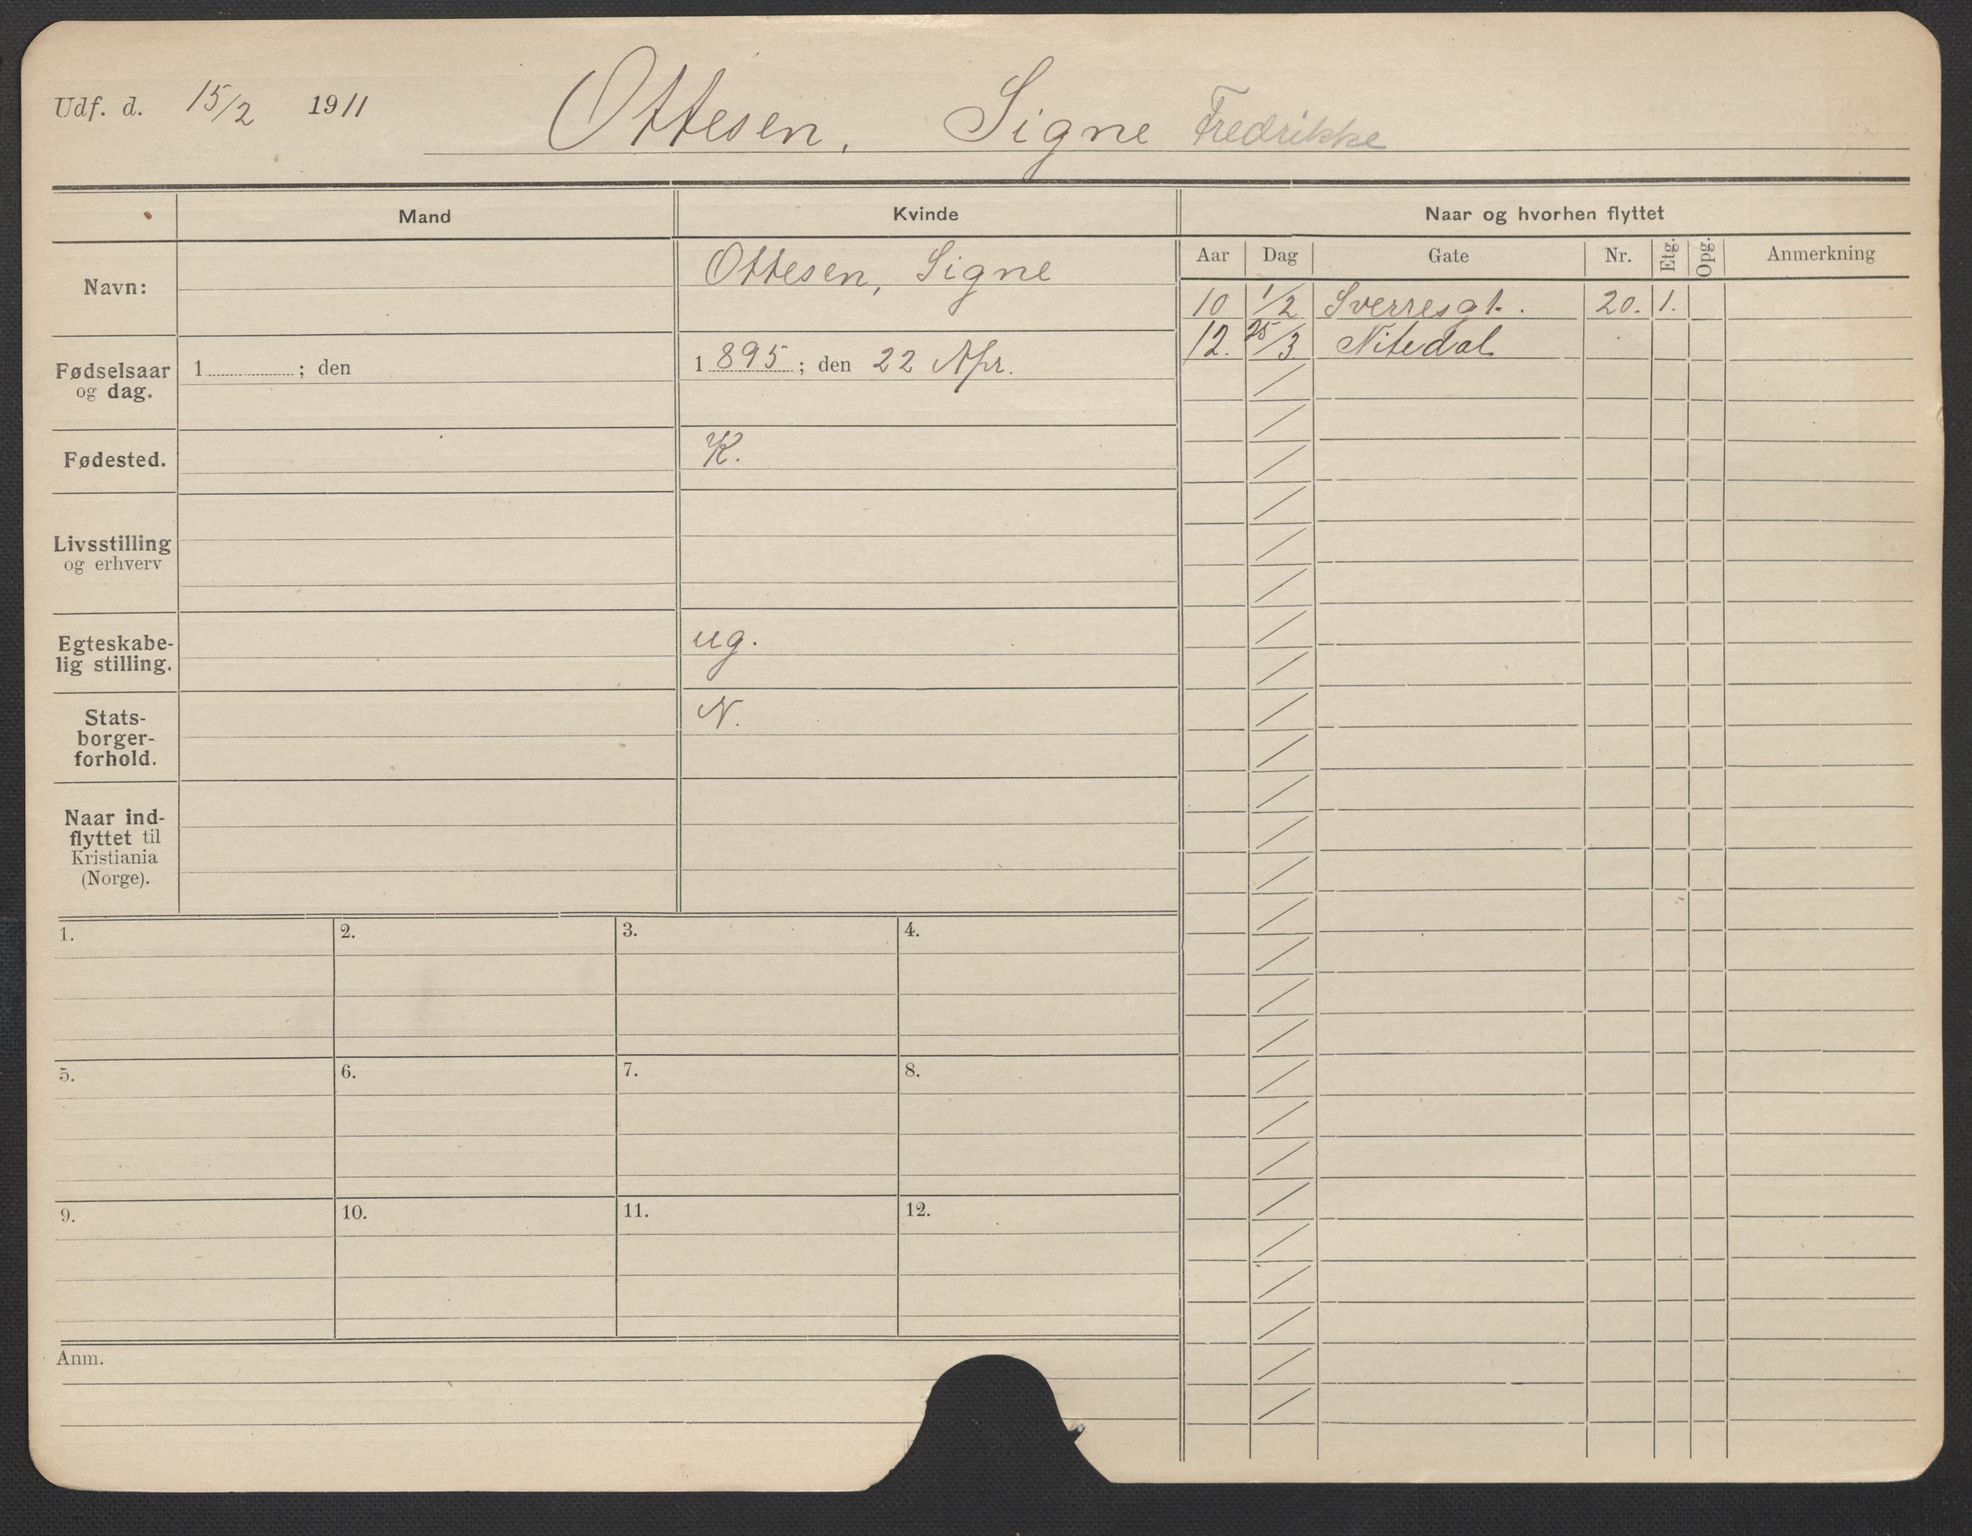 Udf. d. 15/2 1911 Ottesen, Signe Fredrikke
Mand Kvinde Naar og hvorhen flyttet
Aar Dag Gate Nr. Etg. Opg. Anmerkning
Navn: Ottesen, Signe
10 1/2 Sverresgt. 20. 1.
12. 25/3 Nitedal
Fødselsaar og dag. 1 ; den 1895; den 22 Apr.
Fødested. K.
Livsstilling og erhverv
Egteskabe-
lig stilling. ug.
Stats-
borger-
forhold. N.
Naar ind-
flyttet til
Kristiania
(Norge).
1. 2. 3. 4.
5. 6. 7. 8.
9. 10. 11. 12.
Anm.